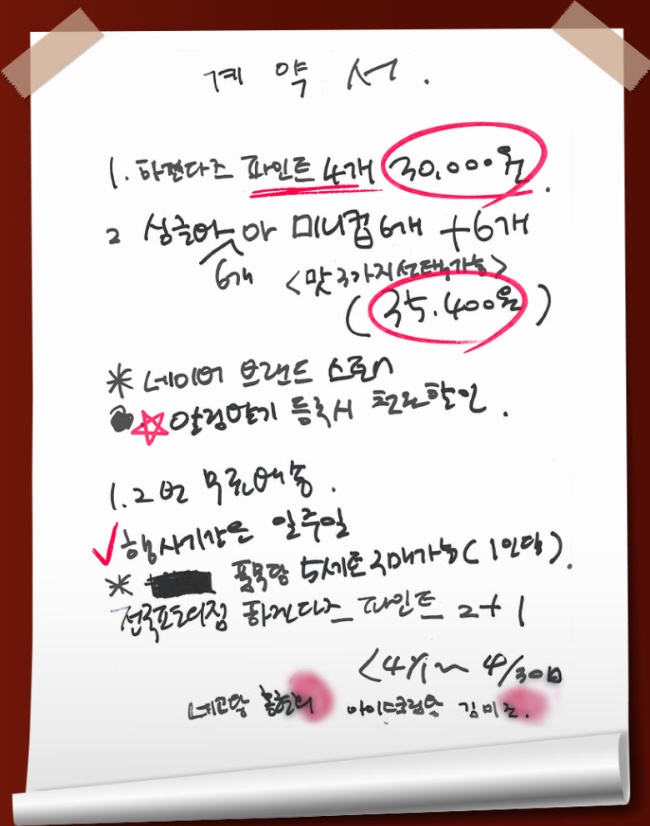 계 약 서 .
1. 하겐다즈 파인트 4개 30,000원 .
2 싱글바 미니컵 6개 +6개
6개 <맛 3가지 선택가능>
( 35.400원 )
* 네이버 브랜드 스토어
알림받기 등록시 할인 .
1. 2번 무료배송 .
행사기간은 일주일
* 품목당 5세트 구매가능 ( 1인당 ) .
전국편의점 하겐다즈 파인트 2+1
<4/1 ~ 4/30일
네고왕 아이스크림왕